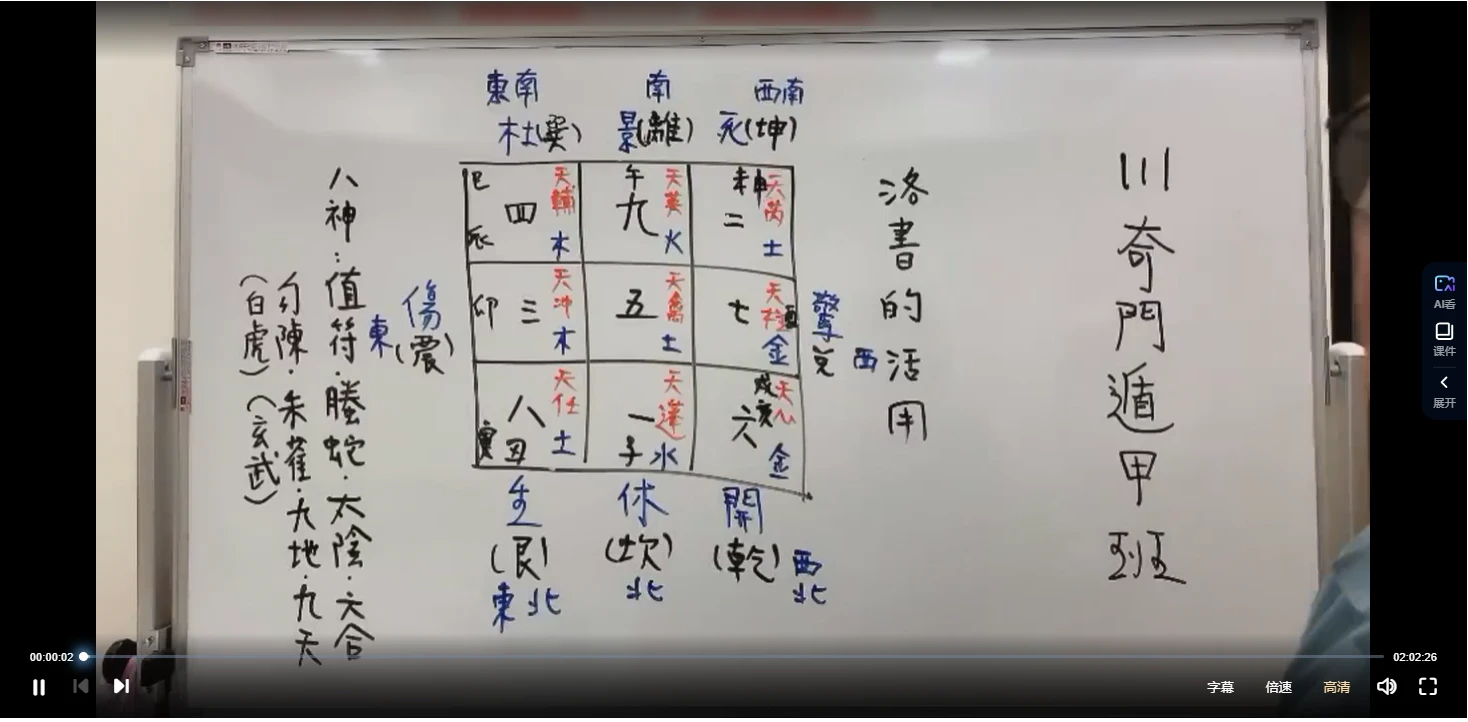 川奇門遁甲班
洛書的活用
東南
南
西南
杜(巽)
景(離)
死(坤)
巳
辰
四
天輔
木
午
九
天英
火
未申
二
天芮
土
卯
三
天冲
木
五
天禽
土
七
天柱
酉
金
寅
八
丑
天任
土
一
子
天蓬
水
戌亥
六
天心
金
傷
(震)
東
驚
兌
西
生
(艮)
東北
休
(坎)
北
開
(乾)
西北
八神:值符.螣蛇.太陰.六合
勾陳.朱雀.九地.九天
(白虎)(玄武)
AI看
课件
展开
00:00:02
02:02:26
字幕
倍速
高清